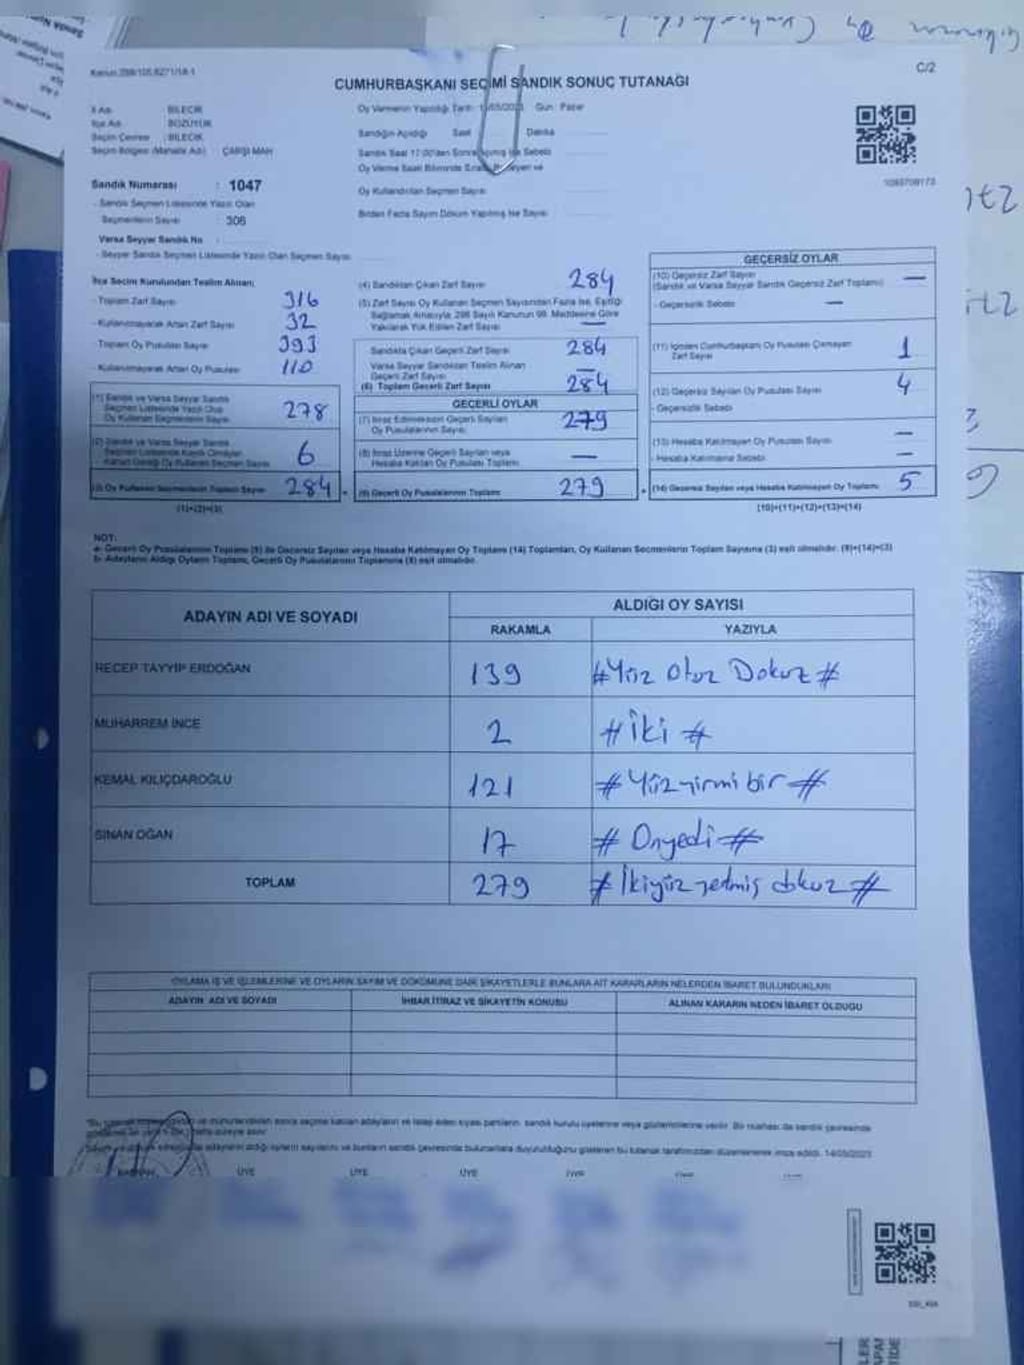 C/2
CUMHURBAŞKANI SEÇİMİ SANDIK SONUÇ TUTANAĞI
İl Adı : BİLECİK
İlçe Adı : BOZÜYÜK
Seçim Çevresi : BİLECİK
Seçim Bölgesi (Mahalle Adı) : ÇARŞI MAH
Oy Vermenin Yapıldığı Tarih Gün : Pazar
Sandığın Açıldığı Saat Dakika
Sandık Saat 17.00'den Sonra Açılmış İse Sebebi
Oy Verme Saati Bitiminde
Oy Kullandırılan Seçmen Sayısı
Birden Fazla Sayım Döküm Yapılmış İse Sayısı
Sandık Numarası : 1047
- Sandık Seçmen Listesinde Yazılı Olan
Seçmenlerin Sayısı : 306
Varsa Seyyar Sandık No :
- Seyyar Sandık Seçmen Listesinde Yazılı Olan Seçmen Sayısı
İlçe Seçim Kurulundan Teslim Alınan;
- Toplam Zarf Sayısı 316
- Kullanılmayarak Artan Zarf Sayısı 32
- Toplam Oy Pusulası Sayısı 393
- Kullanılmayarak Artan Oy Pusulası 110
(1) Sandık ve Varsa Seyyar Sandık
Seçmen Listesinde Yazılı Olup
Oy Kullanan Seçmenlerin Sayısı 278
(2) Sandık ve Varsa Seyyar Sandık
Seçmen Listesinde Kaydı Olmayan
Kanun Gereği Oy Kullanan Seçmen Sayısı 6
(3) Oy Kullanan Seçmenlerin Toplam Sayısı 284
(1)+(2)=(3)
(4) Sandıktan Çıkan Zarf Sayısı 284
(5) Zarf Sayısı Oy Kullanan Seçmen Sayısından Fazla İse, Eşitliği
Sağlamak Amacıyla, 298 Sayılı Kanunun 98. Maddesine Göre
Yakılarak Yok Edilen Zarf Sayısı —
Sandıkta Çıkan Geçerli Zarf Sayısı 284
Varsa Seyyar Sandıktan Teslim Alınan
Geçerli Zarf Sayısı —
(6) Toplam Geçerli Zarf Sayısı 284
GEÇERLİ OYLAR
(7) İtiraz Edilmeksizin Geçerli Sayılan
Oy Pusulalarının Sayısı 279
(8) İtiraz Üzerine Geçerli Sayılan veya
Hesaba Katılan Oy Pusulası Toplamı —
(9) Geçerli Oy Pusulalarının Toplamı 279
GEÇERSİZ OYLAR
(10) Geçersiz Zarf Sayısı —
(Sandık ve Varsa Seyyar Sandık Geçersiz Zarf Toplamı)
- Geçersizlik Sebebi —
(11) İçinden Cumhurbaşkanı Oy Pusulası Çıkmayan
Zarf Sayısı 1
(12) Geçersiz Sayılan Oy Pusulası Sayısı 4
- Geçersizlik Sebebi
(13) Hesaba Katılmayan Oy Pusulası Sayısı —
- Hesaba Katılmama Sebebi —
(14) Geçersiz Sayılan veya Hesaba Katılmayan Oy Toplamı 5
(10)+(11)+(12)+(13)=(14)
NOT:
a- Geçerli Oy Pusulalarının Toplamı (9) ile Geçersiz Sayılan veya Hesaba Katılmayan Oy Toplamı (14) Toplamları, Oy Kullanan Seçmenlerin Toplam Sayısına (3) eşit olmalıdır. (9)+(14)=(3)
b- Adayların Aldığı Oyların Toplamı, Geçerli Oy Pusulalarının Toplamına (9) eşit olmalıdır.
ADAYIN ADI VE SOYADI
ALDIĞI OY SAYISI
RAKAMLA YAZIYLA
RECEP TAYYİP ERDOĞAN 139 # Yüz Otuz Dokuz #
MUHARREM İNCE 2 # İki #
KEMAL KILIÇDAROĞLU 121 # Yüzyirmi bir #
SİNAN OĞAN 17 # Onyedi #
TOPLAM 279 # İkiyüz yetmiş dokuz #
OYLAMA İŞ VE İŞLEMLERİNE VE OYLARIN SAYIM VE DÖKÜMÜNE DAİR ŞİKAYETLERLE BUNLARA AİT KARARLARIN NELERDEN İBARET BULUNDUKLARI
ADAYIN ADI VE SOYADI İHBAR İTİRAZ VE ŞİKAYETİN KONUSU ALINAN KARARIN NEDEN İBARET OLDUĞU
14/05/2023
BAŞKAN ÜYE ÜYE ÜYE ÜYE ÜYE